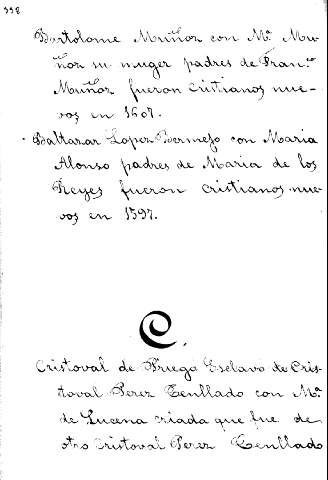 338
Bartolome Muñoz con Mª Mu-
ñoz su muger padres de Franco
Muñoz fueron cristianos nue-
vos en 1601.
Baltazar Lopez Bermejo con Maria
Alonso padres de Maria de los
Reyes fueron cristianos nue-
vos en 1597.
C.
Cristoval de Priego Esclavo de Cris-
toval Perez Tenllado con Mª
de Lucena criada que fue de
otro Cristoval Perez Tenllado